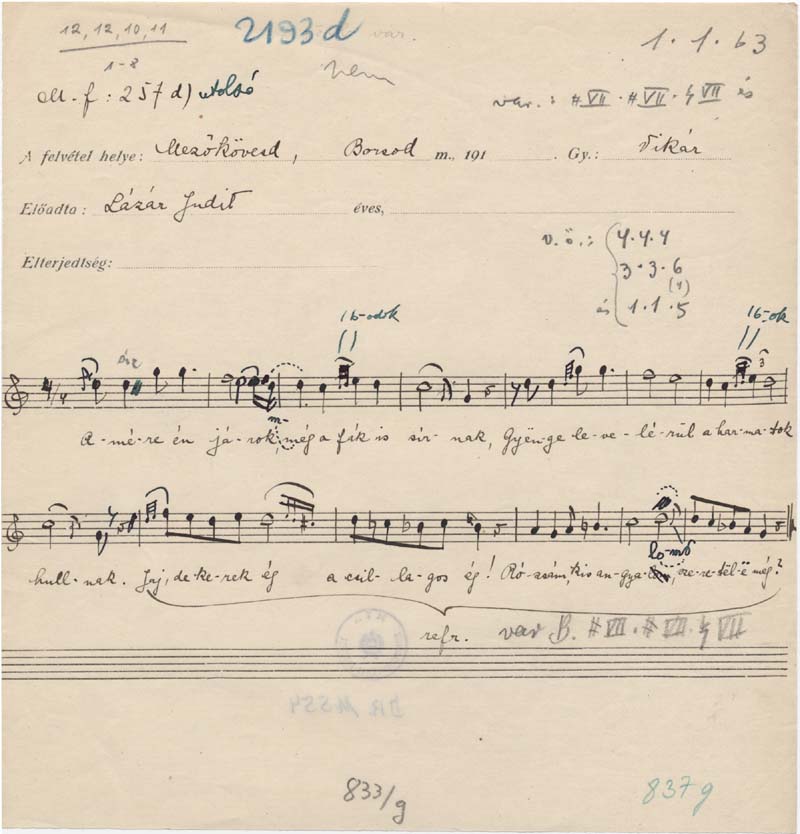 12, 12, 10, 11
2193 d var.
1-8
nem
1 . 1 . b3
M. f : 257 d) utolsó
var. : # VII . # VII . ♮ VII és
A felvétel helye : Mezőkövesd, Borsod m., 191 . Gy.: Vikár
Előadta : Lázár Judit éves,
v. ö. : 4 . 4 . 4
Elterjedtség:
3 . 3 . 6
(4)
és 1 . 1 . 5
16-odok
16-ok
3
m-
A-mé-re én já-rok, még a fák is sír-nak, Gyën-ge le-ve-lé-rűl a har-ma-tok
lo-mé
hull-nak. Jaj, de ke-rek ég a csil-la-gos ég! Ró-zsám, kis an-gya- sze-re-tël-ë még?
refr. var B. # VII . # VII ♮ VII
833/g
837 g